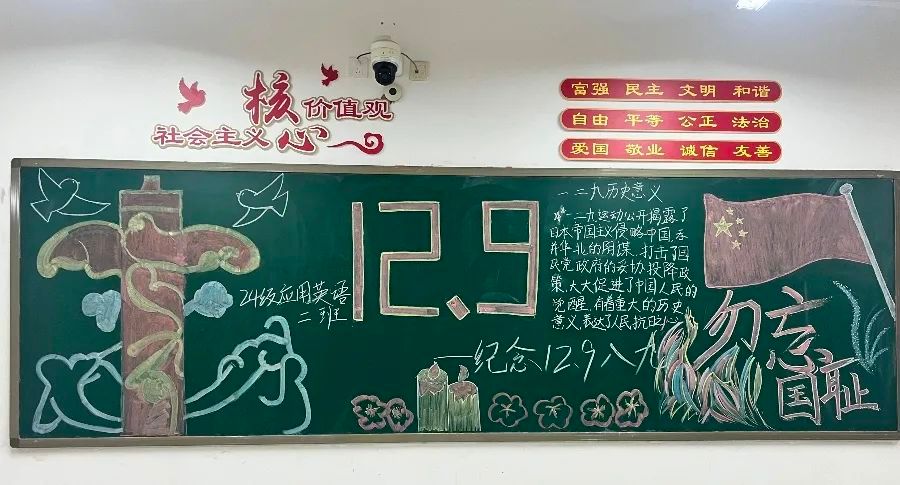 核
价值观
社会主义
心
富强 民主 文明 和谐
自由 平等 公正 法治
爱国 敬业 诚信 友善
24级应用英语
二班
12.9
一二九历史意义
一二九运动公开揭露了
日本帝国主义侵略中国,吞
并华北的阴谋,打击了国
民党政府的妥协投降政
策,大大促进了中国人民的
觉醒,有着重大的历史
意义,表达了人民抗日之心
纪念12.9八九
勿忘
国耻